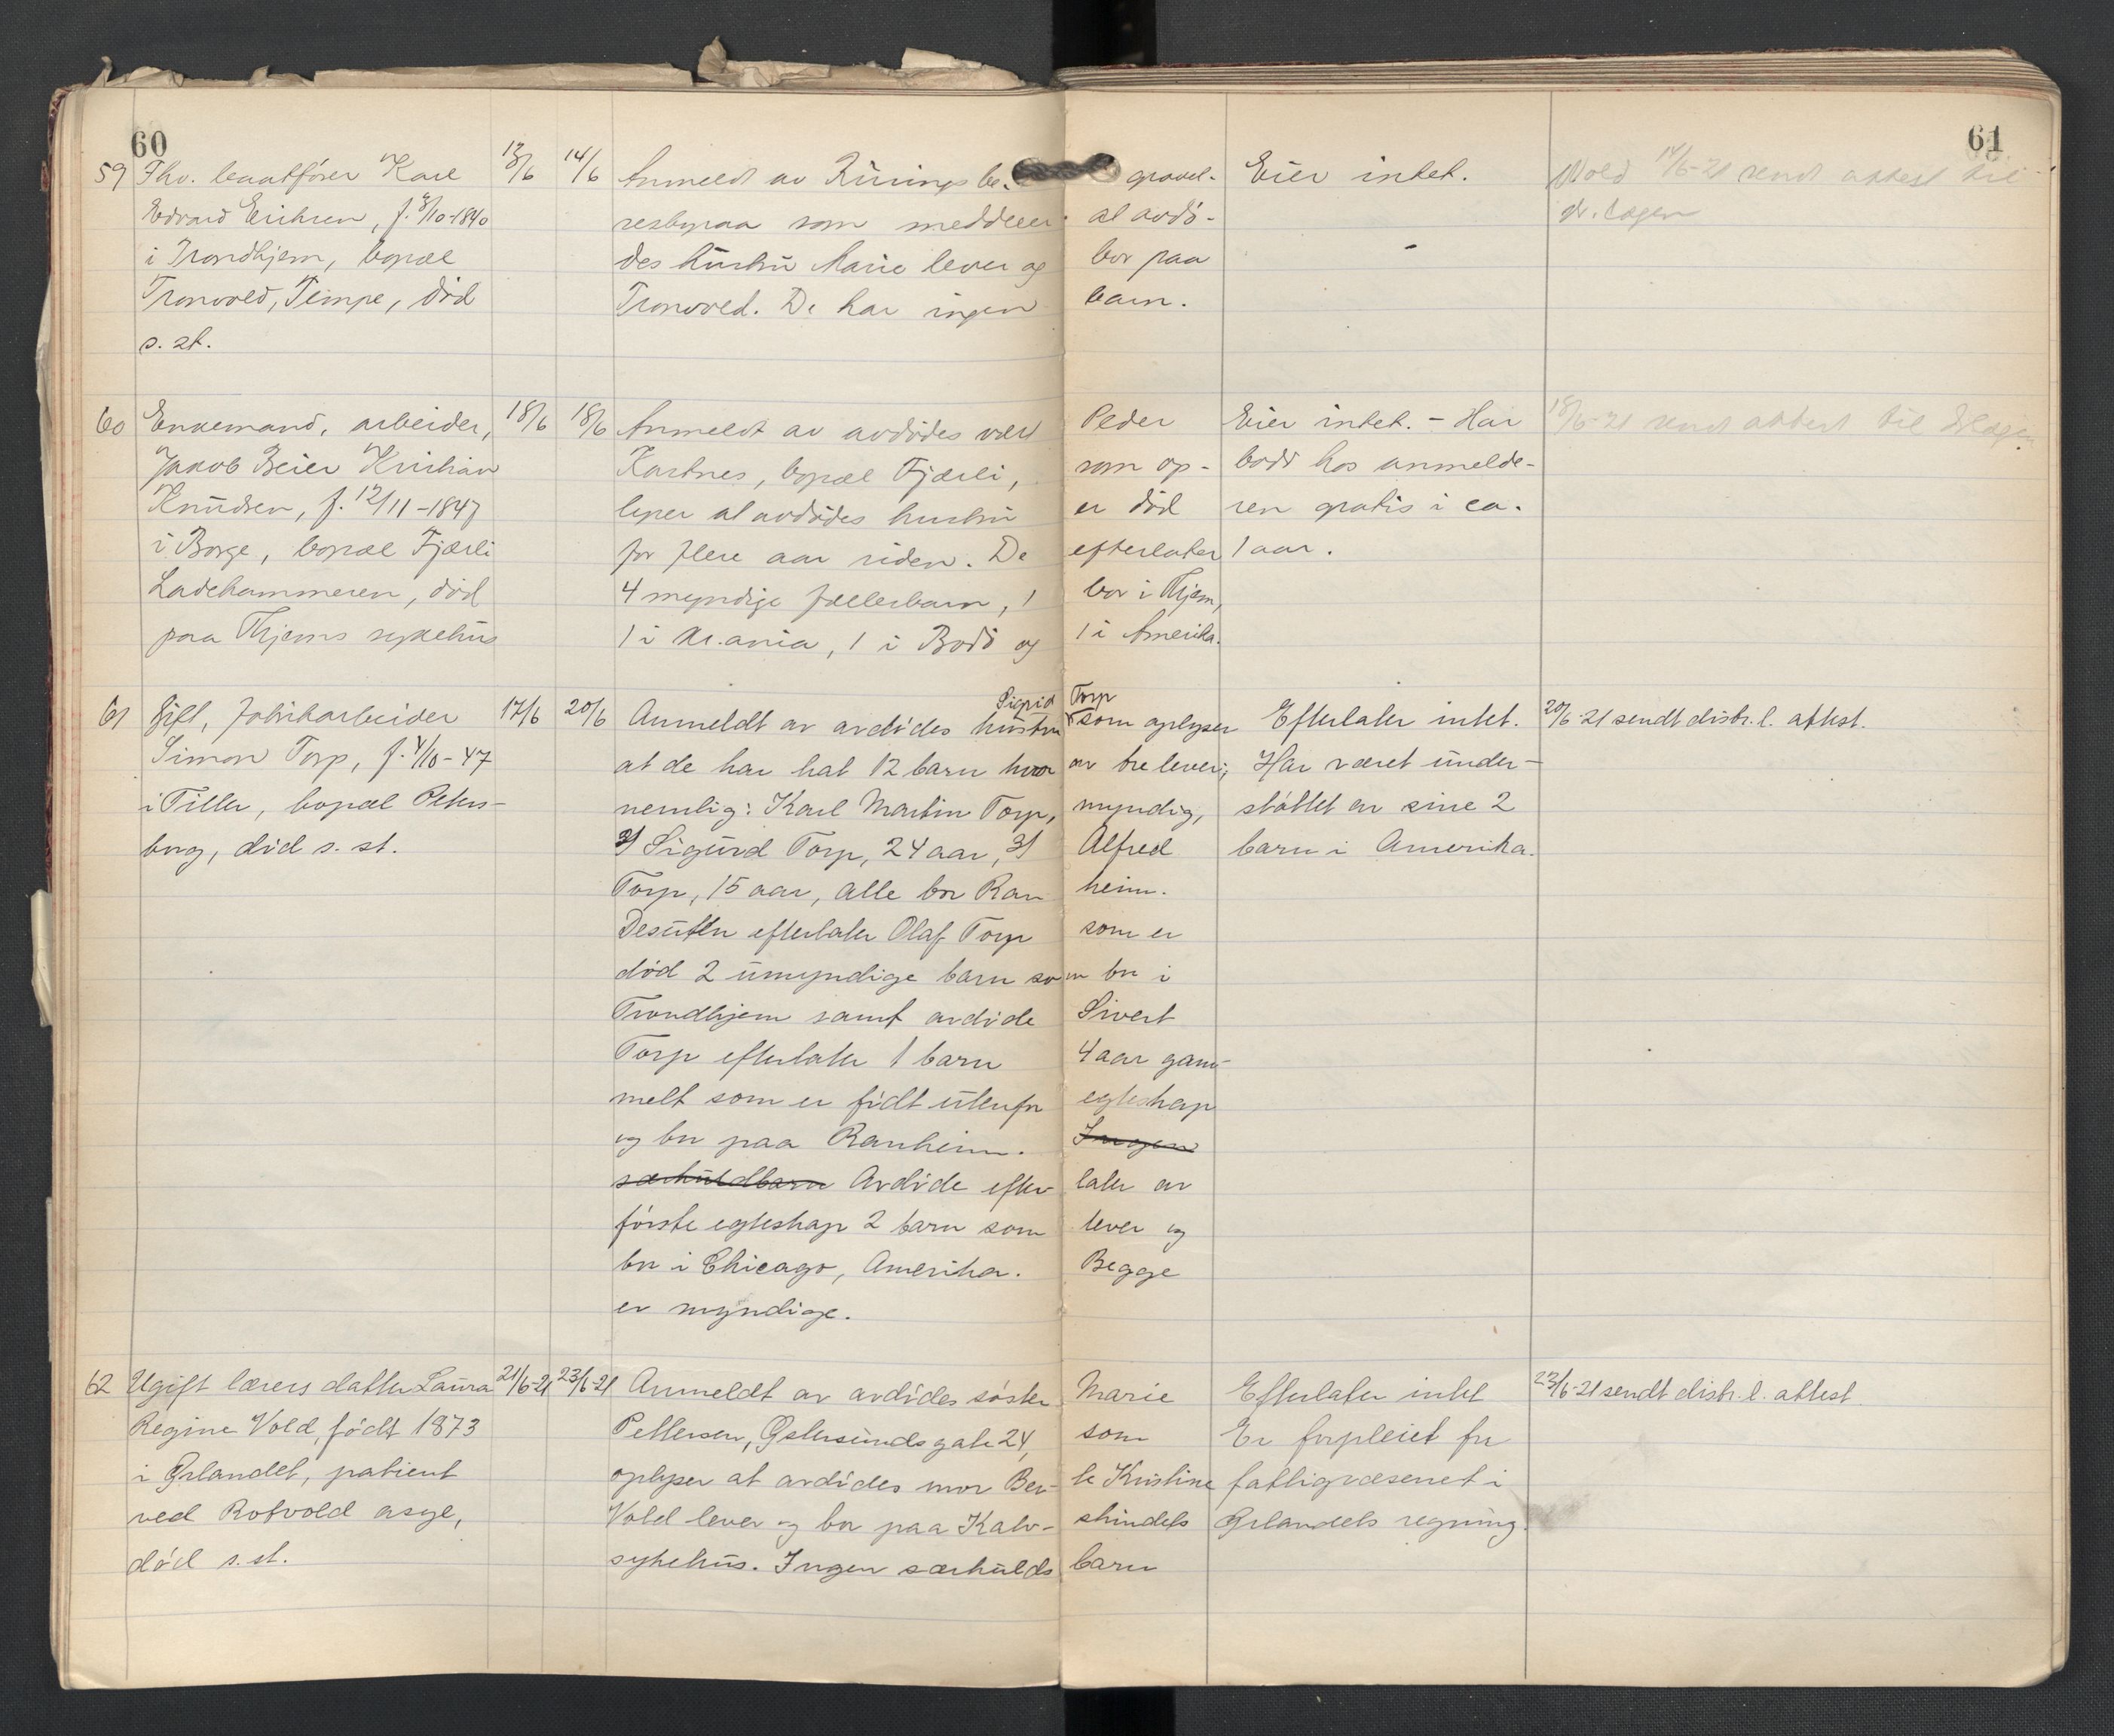 60
61
59 Fhv. baatfører Karl 13/6 14/6 Anmeldt av Rùnings be- gravel- Eier intet. Wold 14/6-21 sendt attest til
Edvard Erichsen, f. 3/10-1840 resbyraa som meddeler at avdø- dr. lagen
i Trondhjem, bopæl des hùstrù Marie lever og bor paa
Tronvold, Tempe, død Tronvold. De har ingen barn.
s. st.
60 Enkemand, arbeider, 18/6 18/6 Anmeldt av avdødes vert Peder Eier intet. - Har 18/6-21 sendt attest til
Jakob Beier Kristian Kartnes, bopæl Fjærli, som op- bodd hos anmelde-
Knùdsen, f. 12/11-1847 lyser at avdødes hustrù er død ren gratis i ca.
i Borge, bopæl Fjærli for flere aar siden. De efterlater 1 aar.
Ladehammeren, død 4 myndige fællesbarn, 1 bor i Thjem,
paa Thjems sykehùs 1 i Kr.ania, 1 i Bodø og 1 i Amerika.
61 Gift, fabrikarbeider 17/6 20/6 Anmeldt av avdødes hùstru Sigrid Torp som oplyser Efterlater intet. 20/6-21 sendt distr. l. attest.
Simon Torp, f. 4/10-47 at de har hat 12 barn hvor av tre lever; Har været ùnder-
i Tiller, bopæl Peters- nemlig: Karl Martin Torp, myndig, støttet av sine 2
borg, død s. st. 2) Sigùrd Torp, 24 aar, 3) Alfred barn i Amerika.
Torp, 15 aar, alle bor Ran heim.
Desùten efterlater Olaf Torp som er
død 2 ùmyndige barn som bor i
Trondhjem samt avdøde Sivert
Torp efterlater 1 barn 4 aar gam-
melt som er født ùtenfor egteskap
og bor paa Ranheim. Ingen
særkùldbarn Avdøde efter later av
første egteskap 2 barn som lever og
bor i Chicago, Amerika. Begge
er myndige.
62 Ugift lærers datter Laùra 21/6-21 23/6-21 Anmeldt av avdødes søster Marie Efterlater intet 23/6-21 sendt distr. l. attest
Regine Vold, født 1873 Pettersen, Østersùnds gate 24, som Er forpleiet for
i Ørlandet, patient oplyser at avdødes mor Ben- te Kristine fattigvæsenet i
ved Rotvold asyl, Vold lever og bor paa Kalv- skindets Ørlandets regning.
død s. st. sykehùs. Ingen særkùlds barn